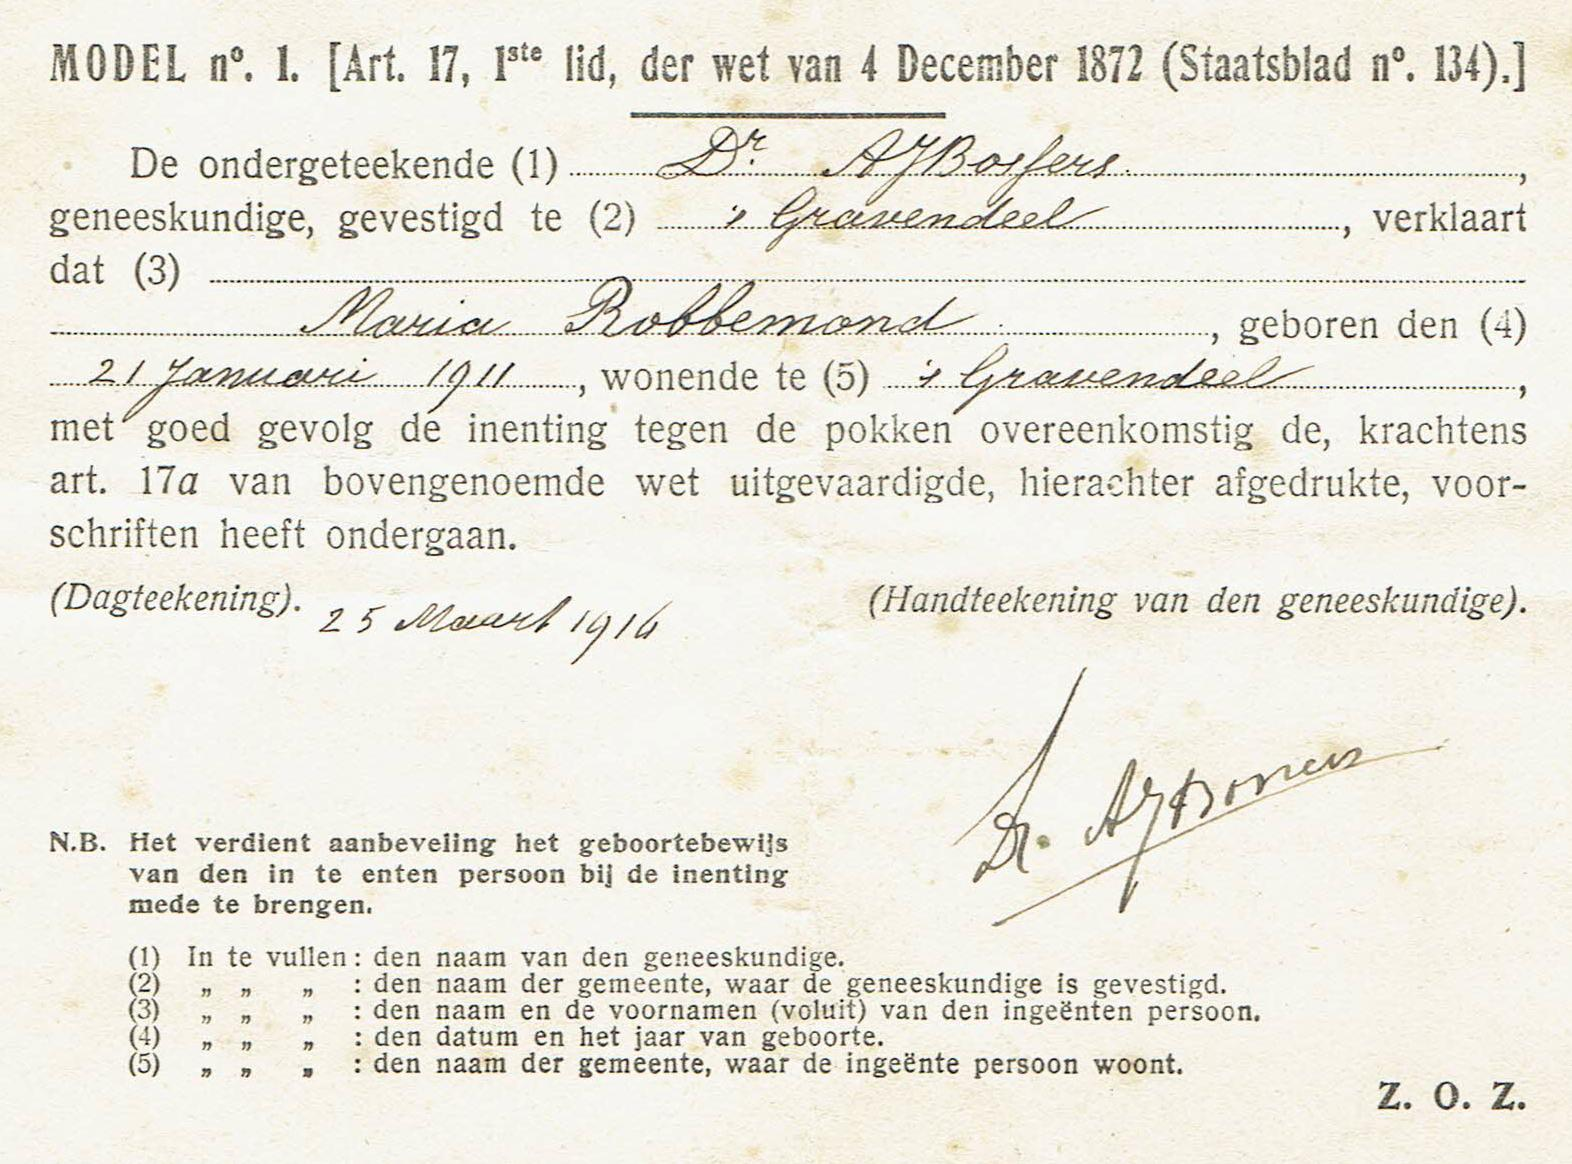 MODEL nº. 1. [Art. 17, 1ste lid, der wet van 4 December 1872 (Staatsblad nº. 134).]
De ondergeteekende (1) Dr. A J
geneeskundige, gevestigd te (2) 's Gravendeel, verklaart
dat (3)
Maria Robbemond, geboren den (4)
21 Januari 1911, wonende te (5) 's Gravendeel,
met goed gevolg de inenting tegen de pokken overeenkomstig de, krachtens
art. 17a van bovengenoemde wet uitgevaardigde, hierachter afgedrukte, voor-
schriften heeft ondergaan.
(Dagteekening). 25 Maart 1916 (Handteekening van den geneeskundige).
Dr. A J
N.B. Het verdient aanbeveling het geboortebewijs
van den in te enten persoon bij de inenting
mede te brengen.
(1) In te vullen: den naam van den geneeskundige.
(2) „ „ „ : den naam der gemeente, waar de geneeskundige is gevestigd.
(3) „ „ „ : den naam en de voornamen (voluit) van den ingeënten persoon.
(4) „ „ „ : den datum en het jaar van geboorte.
(5) „ „ „ : den naam der gemeente, waar de ingeënte persoon woont.
Z. O. Z.